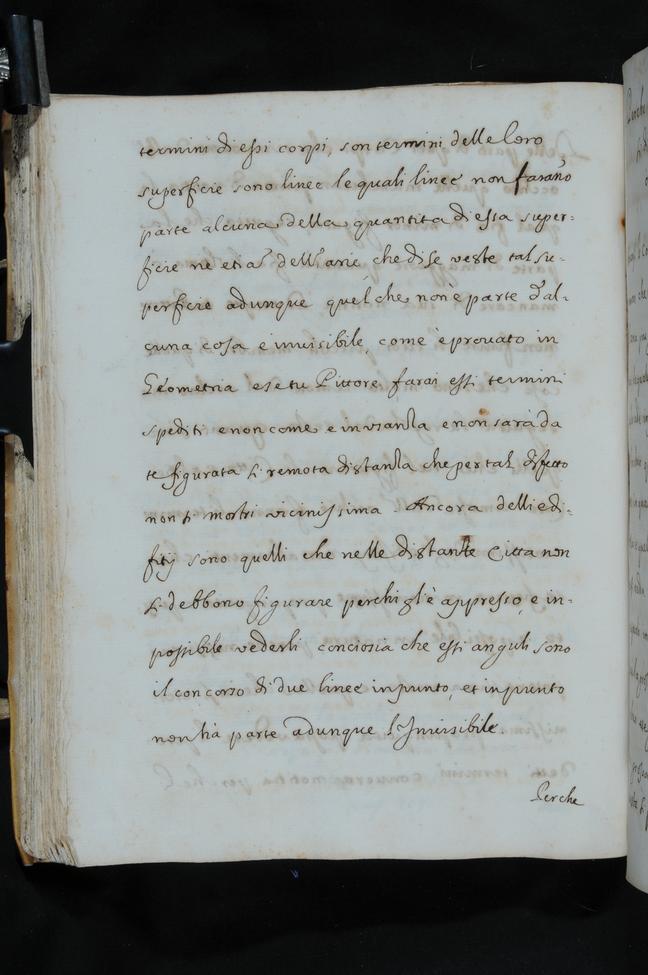 termini di essi corpi, son termini delle loro
superficie sono linee le quali linee non farano
parte alcuna della quantita di essa super-
ficie ne etia dell'aria che di se veste tal su-
perficie adunque quel che non è parte d'al-
cuna cosa è invisibile, come è provato in
Geometria e se tu Pittore farai essi termini
spediti e non come e in usanza e non sarà da
te figurata si remota distanza che per tal difetto
non si mostri vicinissima. Ancora delli edi-
fitij sono quelli che nelle distante Citta non
si debbono figurare perchi gl'è appresso, e in-
possibile vederli conciosia che essi anguli sono
il concorso di due linee in punto, et in punto
non hà parte adunque l'Invisibile.
Perche